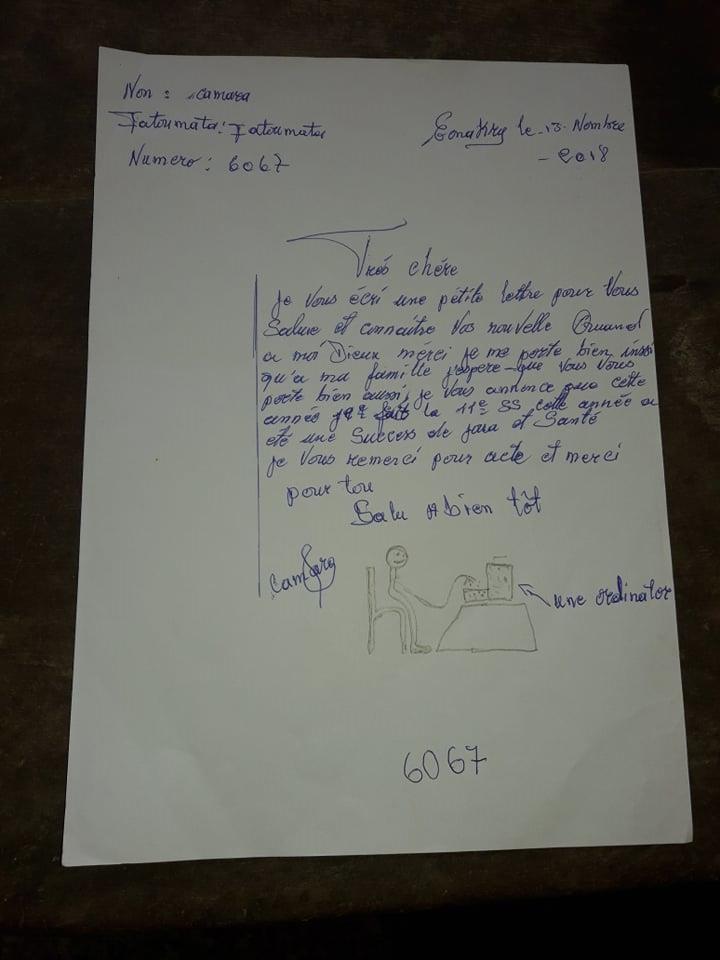 Non : camara
Fatoumata : Fatoumata
Numero : 6067
Conakry le 13 Nombre
- 2018
Trés chére
Je vous écri une pétite lettre pour Vous
Salue et connaitre Vos nouvelle Quuand
a moi Dieux mérci je me porte bien inssi
qu'a ma famille j'espere que Vous Vous
porte bien aussi, je Vous annonce que cette
année fait la 11e SS cette année a
été une Success de et Santé
je Vous remerci pour acte et merci
pour tou
Salu A bien tôt
camara
une ordinator
6067